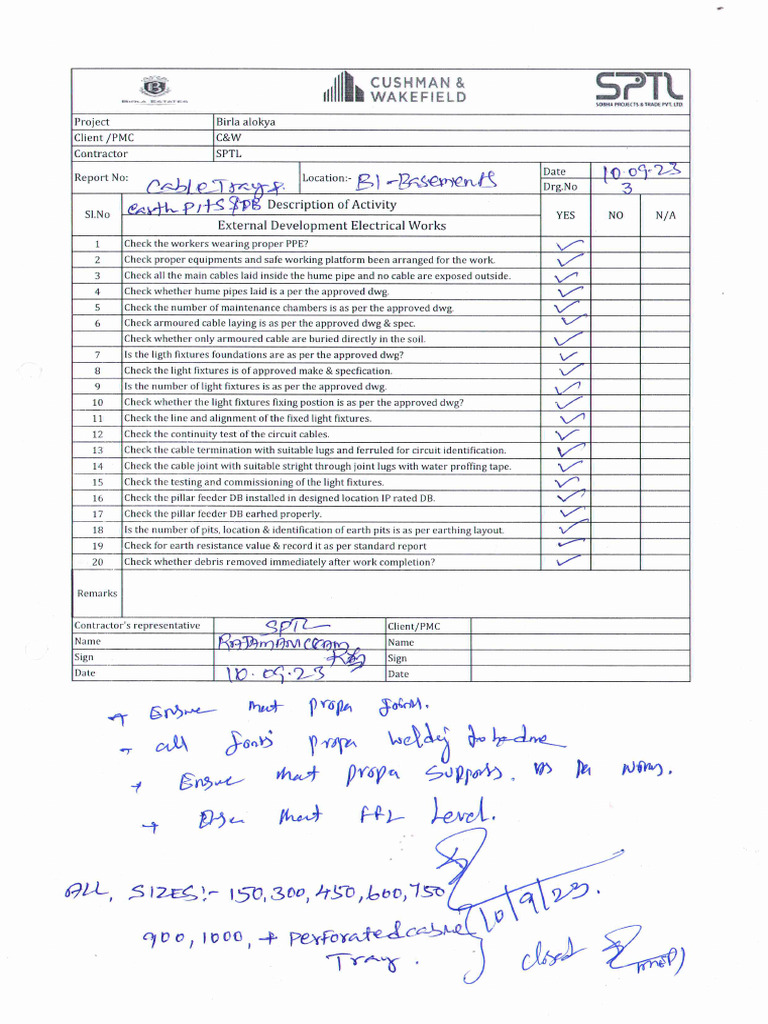 BIRLA ESTATES
CUSHMAN & WAKEFIELD
SPTL
SOBHA PROJECTS & TRADE PVT. LTD.
Project Birla alokya
Client /PMC C&W
Contractor SPTL
Report No: Cable Trays & Location:- B1-Basements Date 10.09.23
Drg.No 3
earth PITS & DB
Sl.No Description of Activity YES NO N/A
External Development Electrical Works
1 Check the workers wearing proper PPE? ✓
2 Check proper equipments and safe working platform been arranged for the work. ✓
3 Check all the main cables laid inside the hume pipe and no cable are exposed outside. ✓
4 Check whether hume pipes laid is a per the approved dwg. ✓
5 Check the number of maintenance chambers is as per the approved dwg. ✓
6 Check armoured cable laying is as per the approved dwg & spec. ✓
Check whether only armoured cable are buried directly in the soil. ✓
7 Is the ligth fixtures foundations are as per the approved dwg? ✓
8 Check the light fixtures is of approved make & specfication. ✓
9 Is the number of light fixtures is as per the approved dwg. ✓
10 Check whether the light fixtures fixing postion is as per the approved dwg? ✓
11 Check the line and alignment of the fixed light fixtures. ✓
12 Check the continuity test of the circuit cables. ✓
13 Check the cable termination with suitable lugs and ferruled for circuit identification. ✓
14 Check the cable joint with suitable stright through joint lugs with water proffing tape. ✓
15 Check the testing and commissioning of the light fixtures. ✓
16 Check the pillar feeder DB installed in designed location IP rated DB. ✓
17 Check the pillar feeder DB earhed properly. ✓
18 Is the number of pits, location & identification of earth pits is as per earthing layout. ✓
19 Check for earth resistance value & record it as per standard report ✓
20 Check whether debris removed immediately after work completion? ✓
Remarks
Contractor's representative SPTL Client/PMC
Name RAJAMANICKAM Name
Sign Sign
Date 10.09.23 Date
→ Ensure that propa joints.
→ all joints propa welding to be done
→ Ensure that propa supports. as per norms.
→ that FFL Level.
ALL, SIZES:- 150,300,450,600,750
10/9/23.
900,1000, + perforated cable
Tray.
closed